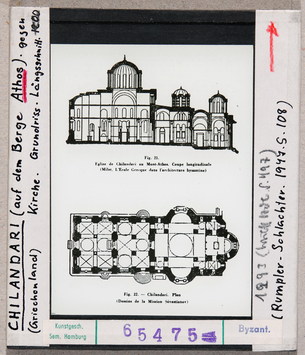 1
CHILANDARI (auf dem Berge Athos). gegen
(Griechenland) Kirche. Grundriss. Längsschnitt.
Fig. 21.
Eglise de Chilandari au Mont-Athos. Coupe longitudinale
(Millet. L'Ecole Grecque dans l'architecture byzantine)
Fig. 22. — Chilandari. Plan
(Dessins de la Mission Sévastianov)
1293
(Rumpler-Schlachten. 1947. S. 108)
Kunstgesch.
Sem. Hamburg
65475
Byzant.